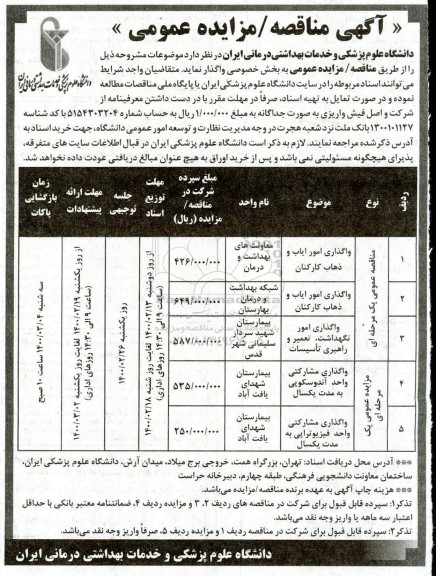 « آگهی مناقصه/مزایده عمومی »
دانشگاه علوم پزشکی و خدمات بهداشتی درمانی ایران در نظر دارد موضوعات مشروحه ذیل
را از طریق مناقصه/ مزایده عمومی به بخش خصوصی واگذار نماید. متقاضیان واجد شرایط
می‌توانند اسناد مربوطه را در سایت دانشگاه علوم پزشکی ایران یا پایگاه ملی مناقصات مطالعه
نموده و در صورت تمایل به تهیه اسناد، صرفاً در مهلت مقرر با در دست داشتن معرفینامه از
شرکت و اصل فیش واریزی به صورت جداگانه به مبلغ ۱/۰۰۰/۰۰۰ ریال به حساب شماره ۵۱۵۴۳۰۳۲۰۴ با کد شناسه
۱۳۰۰۱۰۱۱۲۷ بانک ملت نزد شعبه هجرت در وجه مدیریت نظارت و توسعه امور عمومی دانشگاه، جهت خرید اسناد به
آدرس ذکر شده مراجعه نمایند. لازم به ذکر است دانشگاه علوم پزشکی ایران در قبال اطلاعات سایت های متفرقه،
پذیرای هیچگونه مسئولیتی نمی باشد و پس از خرید اوراق به هیچ عنوان مبالغ دریافتی عودت داده نخواهد شد.
ردیف | نوع | موضوع | نام واحد | مبلغ سپرده شرکت در مناقصه/ مزایده (ریال) | مهلت توزیع اسناد | جلسه توجیهی | مهلت ارائه پیشنهادات | زمان بازگشایی پاکات
۱ | مناقصه عمومی یک مرحله ای | واگذاری امور ایاب و ذهاب کارکنان | معاونت های بهداشت و درمان | ۴۲۶/۰۰۰/۰۰۰
۲ | واگذاری امور ایاب و ذهاب کارکنان | شبکه بهداشت و درمان بهارستان | ۶۴۹/۰۰۰/۰۰۰
۳ | واگذاری امور نگهداشت، تعمیر و راهبری تأسیسات | بیمارستان شهید سردار سلیمانی شهر قدس | ۵۸۷/۰۰۰/۰۰۰
۴ | مزایده عمومی یک مرحله ای | واگذاری مشارکتی واحد آندوسکوپی به مدت یکسال | بیمارستان شهدای یافت آباد | ۵۲۵/۰۰۰/۰۰۰
۵ | واگذاری مشارکتی واحد فیزیوتراپی به مدت یکسال | بیمارستان شهدای یافت آباد | ۲۵۰/۰۰۰/۰۰۰
از روز دوشنبه ۱۴۰۰/۰۲/۱۳ لغایت روز شنبه ۱۴۰۰/۰۲/۱۸
(ساعت ۹ الی ۱۴:۳۰ روزهای اداری)
روز یکشنبه ۱۴۰۰/۰۲/۲۶
از روز یکشنبه ۱۴۰۰/۰۲/۱۹ لغایت روز یکشنبه ۱۴۰۰/۰۳/۰۲
(ساعت ۹ الی ۱۴:۳۰ روزهای اداری)
سه شنبه ۱۴۰۰/۰۳/۰۴ ساعت ۱۰ صبح
*** آدرس محل دریافت اسناد: تهران، بزرگراه همت، خروجی برج میلاد، میدان آرش، دانشگاه علوم پزشکی ایران،
ساختمان معاونت دانشجویی فرهنگی، طبقه چهارم، دبیرخانه حراست
*** هزینه چاپ آگهی به عهده برنده مناقصه/مزایده می‌باشد.
تذکر۱: سپرده قابل قبول برای شرکت در مناقصه های ردیف ۲، ۳ و مزایده ردیف ۴، ضمانتنامه معتبر بانکی با حداقل
اعتبار سه ماهه یا واریز وجه نقد می‌باشد.
تذکر۲: سپرده قابل قبول برای شرکت در مناقصه ردیف ۱ و مزایده ردیف ۵، صرفاً واریز وجه نقد می‌باشد.
دانشگاه علوم پزشکی و خدمات بهداشتی درمانی ایران